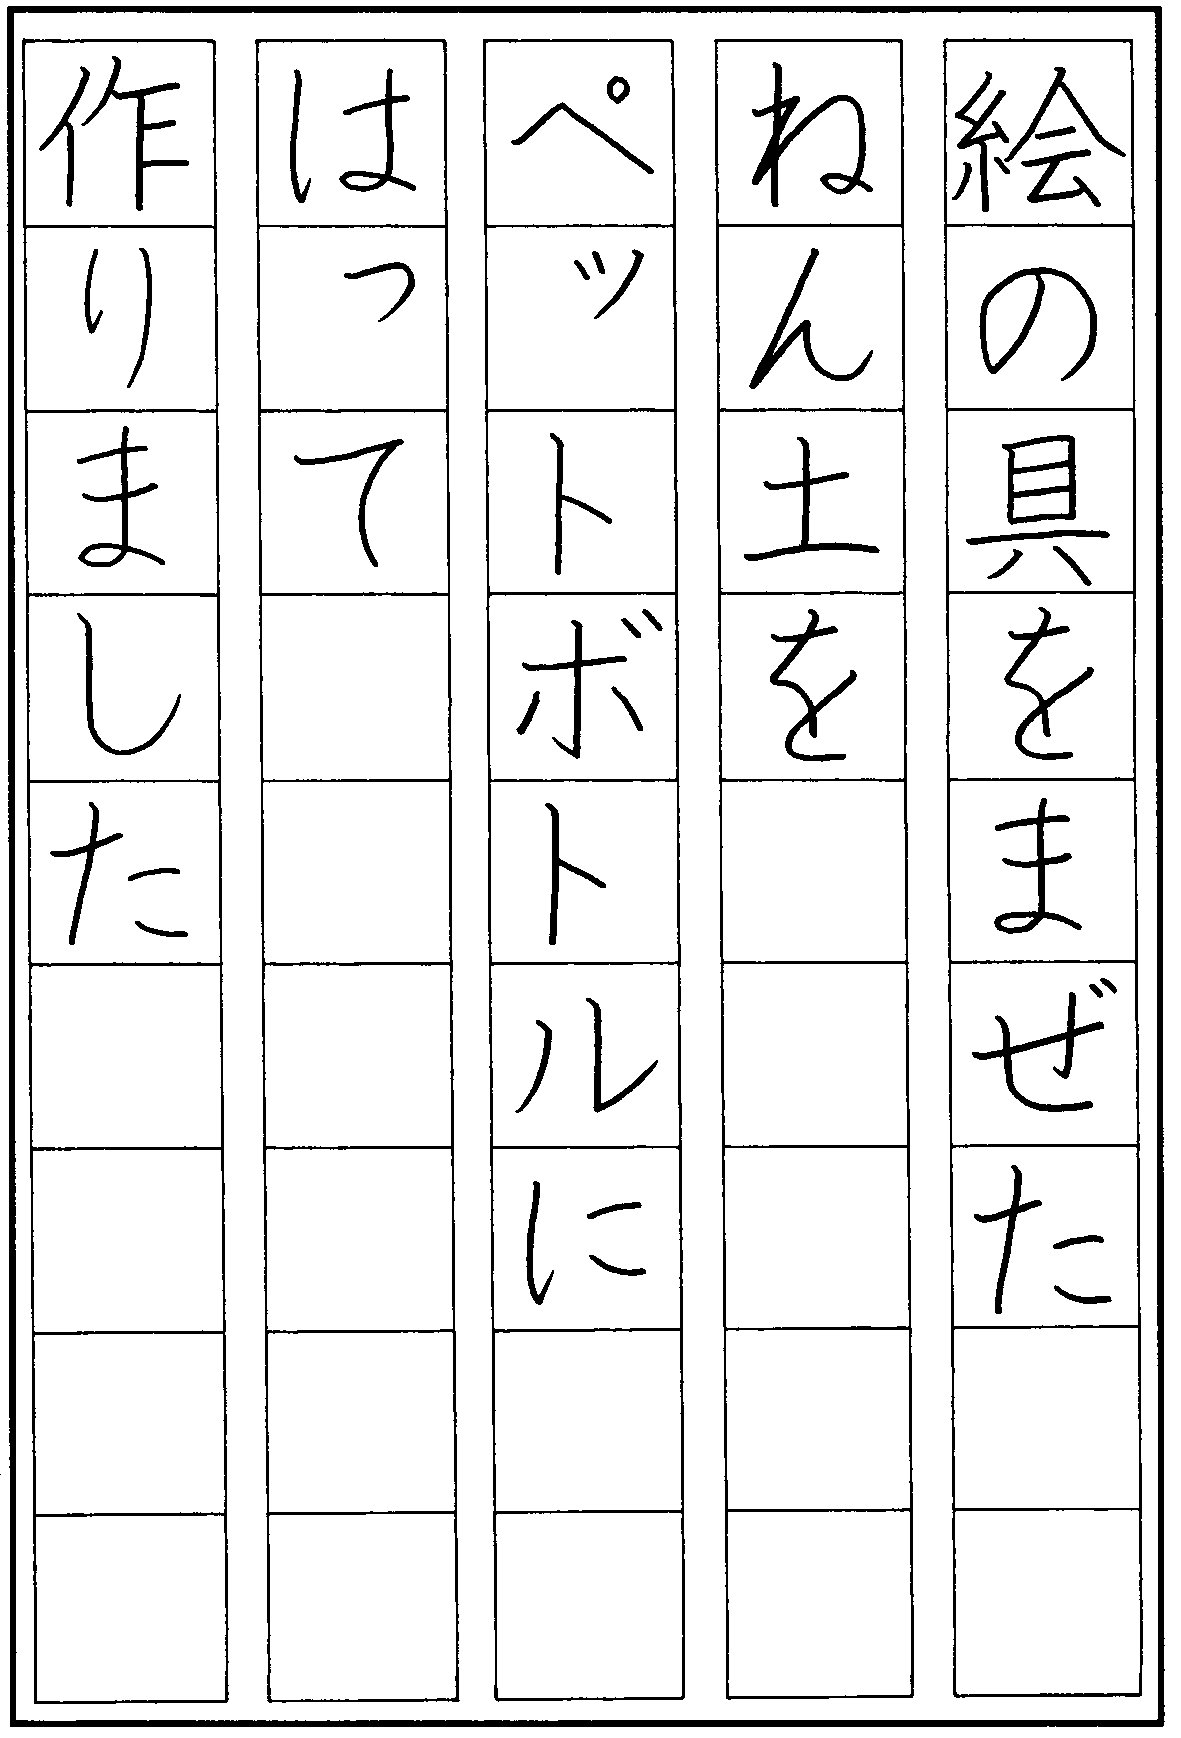 絵の具をまぜた
ねん土を
ペットボトルに
はって
作りました